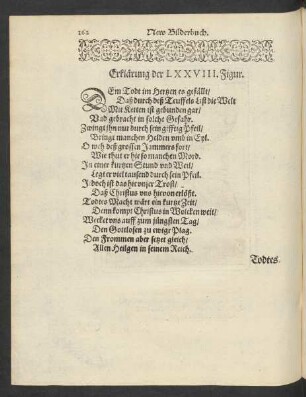 162 New Bilderbuch.
Erklärung der LXXVIII. Figur.
DEm Todt im Hertzen es gefällt/
Daß durch deß Teuffels List die Welt
Mit Ketten ist gebunden gar/
Und gebracht in solche Gefahr.
Zwingt ihn nur durch sein gifftig Pfeil/
Bringt manchen Helden umb in Eyl.
O weh deß grossen Jammers fort/
Wie thut er hie so manchen Mord.
In einer kurtzen Stund und Weil/
Legt er viel tausend durch sein Pfeil.
Jedoch ist das hie unser Trost/
Daß Christus uns hievon erlößt.
Todtes Macht wärt ein kurtze Zeit/
Denn kompt Christus in Wolcken weit/
Wecket uns auff zum jüngsten Tag/
Den Gottlosen zu ewige Plag.
Den Frommen aber setzet gleich/
Allen Heilgen in seinem Reich.
Todtes